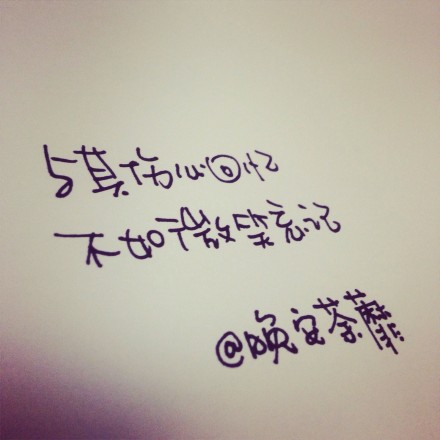 与其伤心回忆
不如微笑忘记
@晚安荼蘼